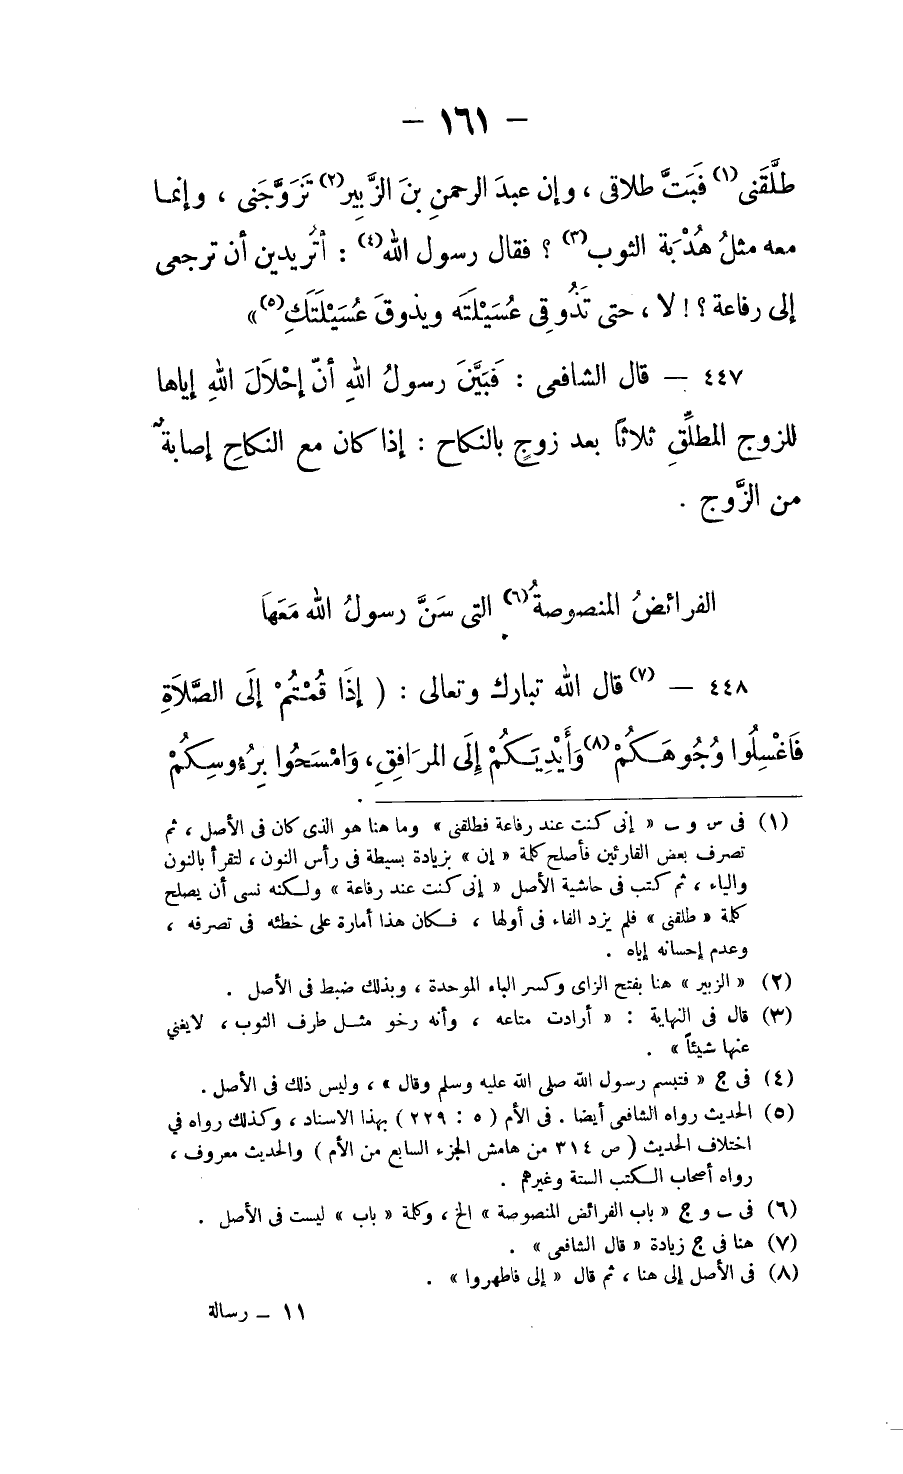 — ١٦١ —
طلَّقَنى(١) فَبَتَّ طلاقى ، وإن عبدَ الرحمنِ بنَ الزَّبِيرِ(٢) تَزَوَّجَنى ، وإنما
معه مثلُ هُدْبَة الثوب(٣) ؟ فقال رسول الله(٤) : أتُريدين أن ترجعى
إلى رفاعة ؟! لا ، حتى تَذُوقِى عُسَيْلَتَه ويذوقَ عُسَيْلَتَكِ(٥) »
٤٤٧ — قال الشافعى : فَبَيَّنَ رسولُ اللهِ أنّ إِحْلاَلَ اللهِ إياها
للزوج المطلِّقِ ثلاثاً بعد زوجٍ بالنكاح : إذا كان مع النكاحِ إصابةٌ
من الزَّوج .
الفرائضُ المنصوصةُ(٦) التى سَنَّ رسولُ الله مَعَهَا
٤٤٨ — (٧) قال الله تبارك وتعالى : ( إِذَا قُمْتُمْ إِلَى الصَّلاَةِ
فَاغْسِلُوا وُجُوهَكُمْ(٨) وَأَيْدِيَكُمْ إِلَى المرَافِقِ، وَامْسَحُوا بِرُءُوسِكُمْ
(١) فى س و ب « إنى كنت عند رفاعة فطلقنى » وما هنا هو الذى كان فى الأصل ، ثم
تصرف بعض القارئين فأصلح كلمة « إن » بزيادة بسيطة فى رأس النون ، لتقرأ بالنون
والياء ، ثم كتب فى حاشية الأصل « إنى كنت عند رفاعة » ولكنه نسى أن يصلح
كلمة « طلقنى » فلم يزد الفاء فى أولها ، فكان هذا أمارة على خطئه فى تصرفه ،
وعدم إحسانه إياه .
(٢) « الزبير » هنا بفتح الزاى وكسر الباء الموحدة ، وبذلك ضبط فى الأصل .
(٣) قال فى النهاية : « أرادت متاعه ، وأنه رخو مثل طرف الثوب ، لايغني
عنها شيئاً » .
(٤) فى ج « فتبسم رسول الله صلى الله عليه وسلم وقال » ، وليس ذلك فى الأصل .
(٥) الحديث رواه الشافعى أيضا . فى الأم ( ٥ : ٢٢٩ ) بهذا الاسناد ، وكذلك رواه في
اختلاف الحديث ( ص ٣١٤ من هامش الجزء السابع من الأم ) والحديث معروف ،
رواه أصحاب الكتب الستة وغيرهم .
(٦) فى ب و ج « باب الفرائض المنصوصة » الخ ، وكلمة « باب » ليست فى الأصل .
(٧) هنا فى ج زيادة « قال الشافعى » .
(٨) فى الأصل إلى هنا ، ثم قال « إلى فاطهروا » .
١١ — رسالة